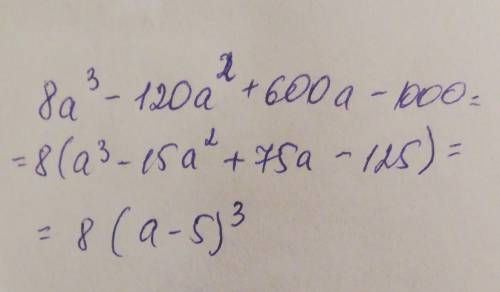 8a³ - 120a² + 600a - 1000 =
= 8(a³ - 15a² + 75a - 125) =
= 8(a - 5)³